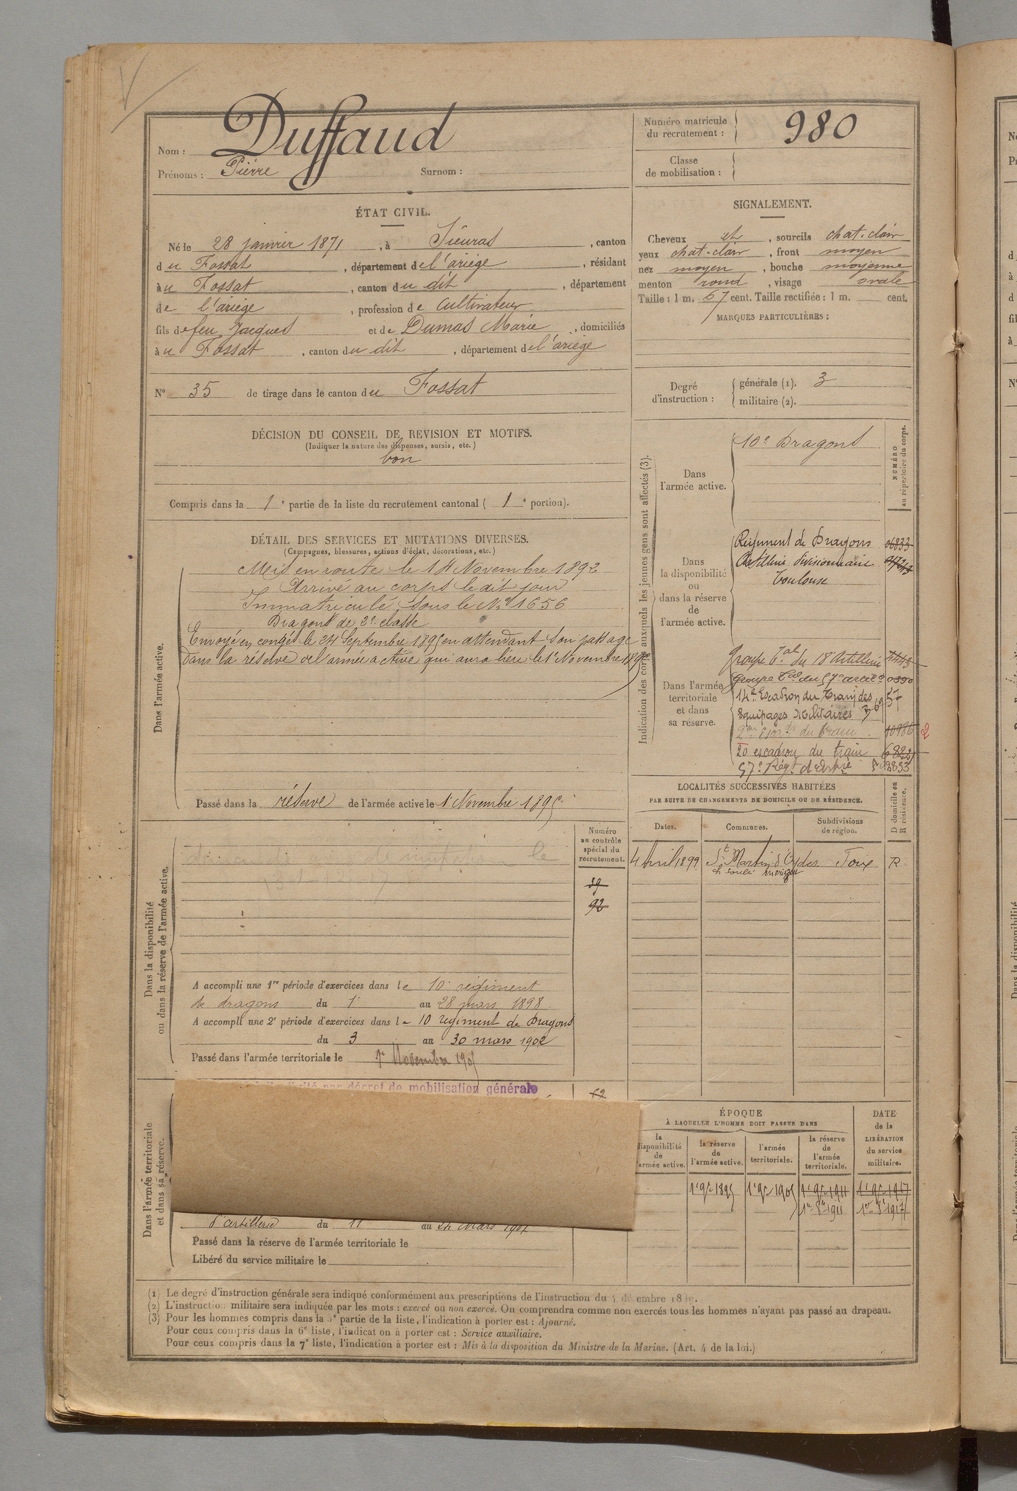 Nom : Duffaud
Prénoms : Pierre Surnom :
Numéro matricule du recrutement : 980
Classe de mobilisation :
ÉTAT CIVIL.
Né le 28 janvier 1871, à Sieuras, canton
du Fossat, département de l'ariège, résidant
à u Fossat, canton du dit, département
de l'ariège, profession de Cultivateur
fils de feu Jacques et de Dumas Marie, domiciliés
à u Fossat, canton du dit, département de l'ariège
N° 35 de tirage dans le canton du Fossat
SIGNALEMENT.
Cheveux et, sourcils chat-clair
yeux chat-clair, front moyen
nez moyen, bouche moyenne
menton rond, visage ovale
Taille : 1 m. 67 cent. Taille rectifiée : 1 m. cent.
MARQUES PARTICULIÈRES :
Degré d'instruction : générale (1). 3
militaire (2).
DÉCISION DU CONSEIL DE REVISION ET MOTIFS.
(Indiquer la nature des dispenses, sursis, etc.)
bon
Compris dans la 1e partie de la liste du recrutement cantonal ( 1e portion).
DÉTAIL DES SERVICES ET MUTATIONS DIVERSES.
(Campagnes, blessures, actions d'éclat, décorations, etc.)
Dans l'armée active.
Mis en route le 14 Novembre 1892
Arrivé au corps le dit jour
Immatriculé sous le No 1656
Dragons de 2e classe
Envoyé en congé le 24 Septembre 1895 en attendant son passage
dans la réserve de l'armée active qui aura lieu le 1er Novembre 1895
Passé dans la réserve de l'armée active le 1 Novembre 1895
Indication des corps auxquels les jeunes gens sont affectés (3).
NUMÉRO au répertoire du corps.
Dans l'armée active.
10e Dragons
Dans la disponibilité ou dans la réserve de l'armée active.
Régiment de Dragons 06833
Artillerie divisionnaire
Toulouse
Dans l'armée territoriale et dans sa réserve.
Groupe Tal du 18 Artillerie
Groupe
du train des 57
Equipages Militaires
escadron du train
57e Régt d'
LOCALITÉS SUCCESSIVES HABITÉES
PAR SUITE DE CHANGEMENTS DE DOMICILE OU DE RÉSIDENCE.
Dates. Communes. Subdivisions de région. D domicile ou R résidence.
4 Avril 1899 St Martin d'Oydes Foix R
Dans la disponibilité ou dans la réserve de l'armée active.
Numéro au contrôle spécial du recrutement.
39
92
A accompli une 1re période d'exercices dans le 10e régiment
de dragons du 1er au 28 mars 1898
A accompli une 2e période d'exercices dans le 10 régiment de Dragons
du 3 au 30 mars 1902
Passé dans l'armée territoriale le 1er Novembre 1905
Dans l'armée territoriale et dans sa réserve.
décret de mobilisation générale
d'artillerie du 11 au 24 Mars 1907
Passé dans la réserve de l'armée territoriale le
Libéré du service militaire le
ÉPOQUE
À LAQUELLE L'HOMME DOIT PASSER DANS
la disponibilité de l'armée active. la réserve de l'armée active. l'armée territoriale. la réserve de l'armée territoriale.
DATE de la LIBÉRATION du service militaire.
1er 9bre 1895 1er 9bre 1905 1er 9bre 1911 1er 9bre 1917
1er 8bre 1911 1er 8bre 1917
(1) Le degré d'instruction générale sera indiqué conformément aux prescriptions de l'instruction du
(2) L'instruction militaire sera indiquée par les mots : exercé ou non exercé. On comprendra comme non exercés tous les hommes n'ayant pas passé au drapeau.
(3) Pour les hommes compris dans la partie de la liste, l'indication à porter est : Ajourné.
Pour ceux compris dans la 6e liste, l'indication à porter est : Service auxiliaire.
Pour ceux compris dans la 7e liste, l'indication à porter est : Mis à la disposition du Ministre de la Marine. (Art. 4 de la loi.)